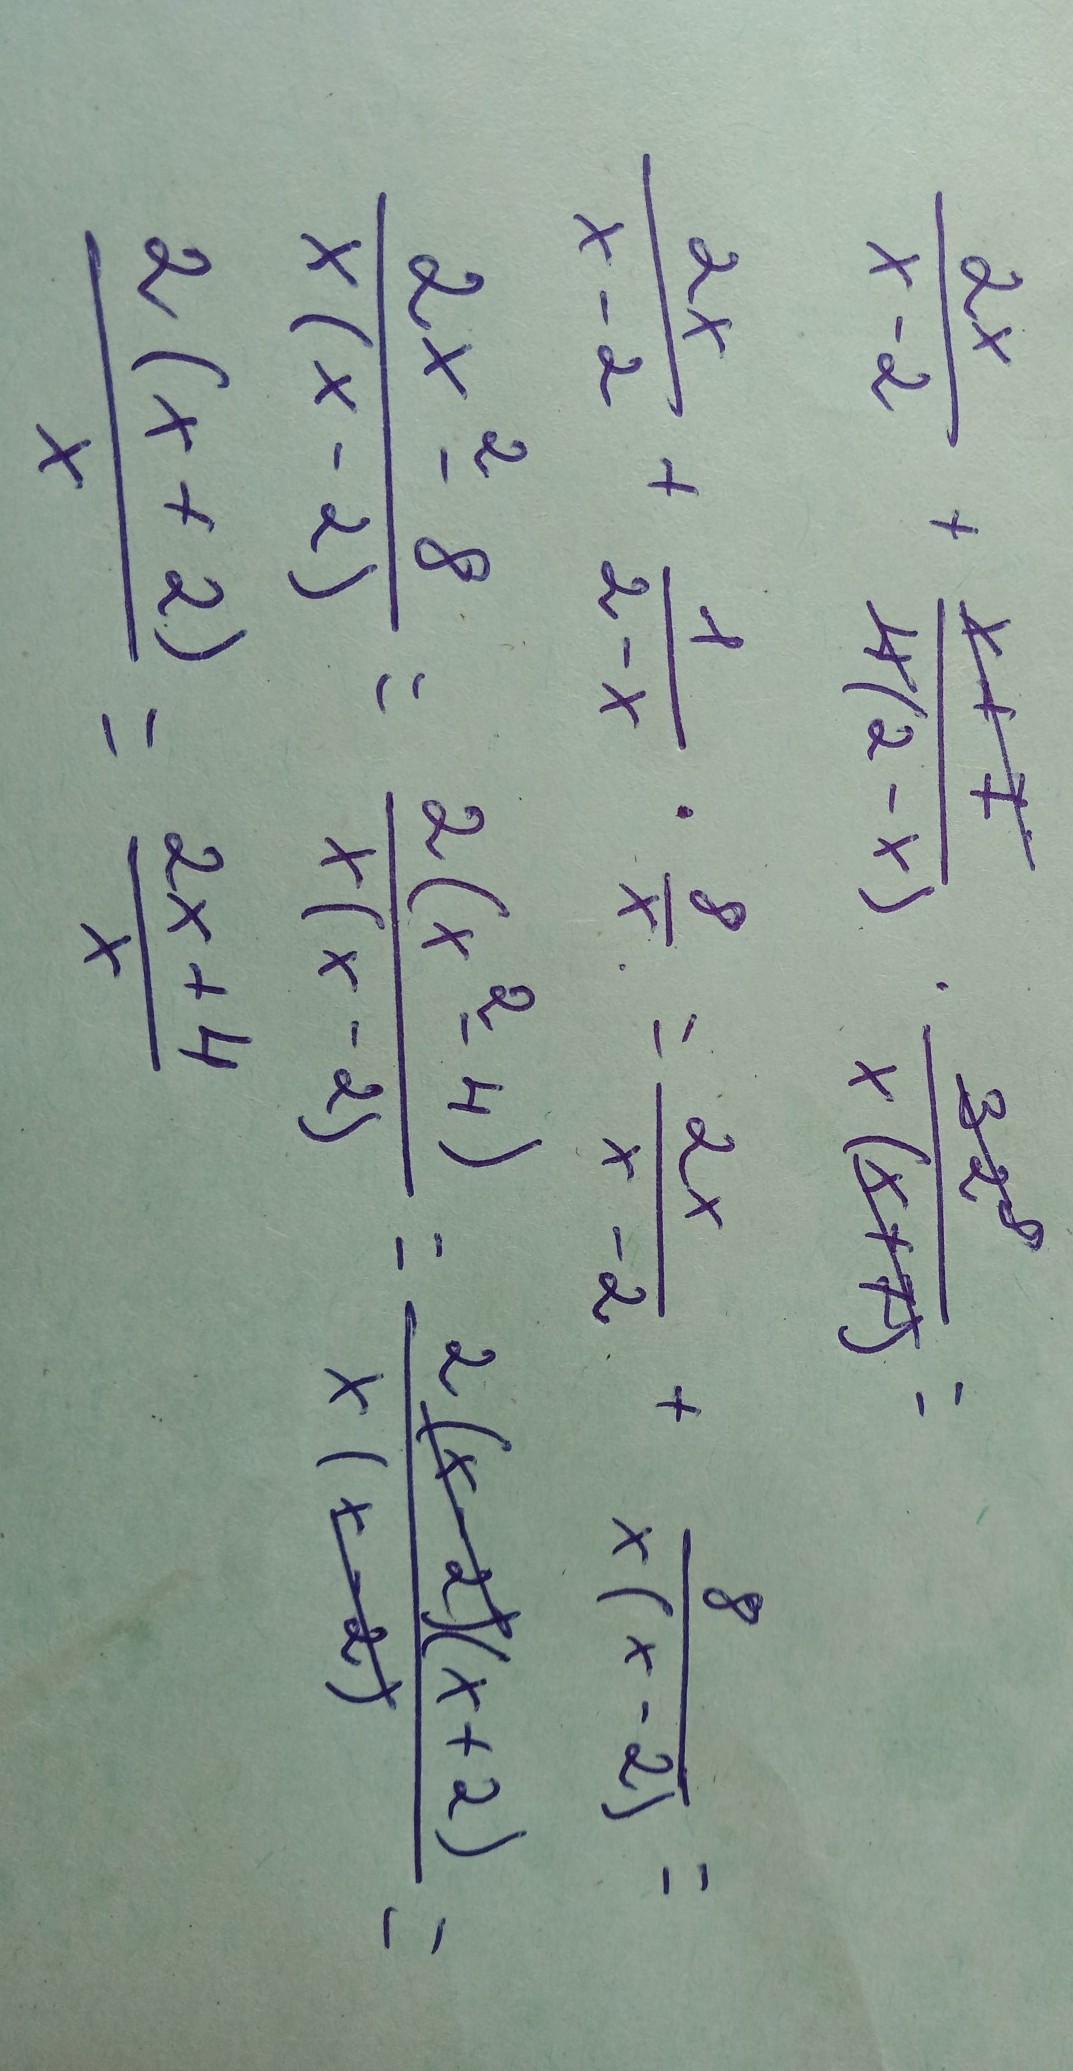 2x/(x-2) + (x+7)/(4(2-x)) · 32 8/(x(x+7)) =
2x/(x-2) + 1/(2-x) · 8/x = 2x/(x-2) + 8/(x(x-2)) =
(2x²-8)/(x(x-2)) = 2(x²-4)/(x(x-2)) = 2(x-2)(x+2)/(x(x-2)) =
2(x+2)/x = (2x+4)/x